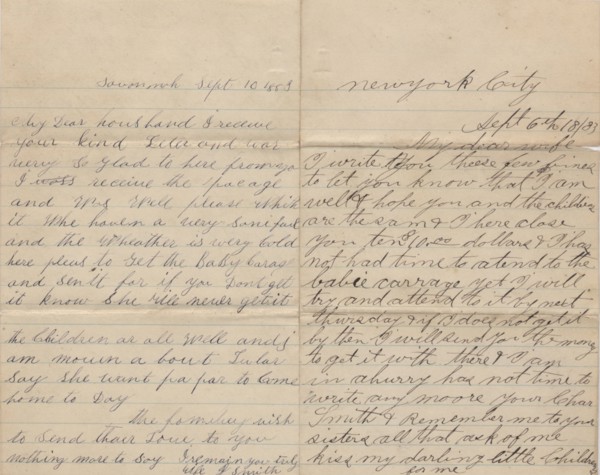 Savannah Sept 10 1883
My Dear houshand I receive
your kind Letta and war
very So glad to here from you
I receive the pacage
and Was Well please With
it Whe haven a very
and the Wheather is very Cold
here pleas to Get the Baby
and Sent for if you Don't get
it know She Will never get it
the Children ar all Well and i
am a bout
Say She want pa par to Come
home to Day
the wish
to Send thair Love to you
nothing more to Say I remain your
Smith
newyork City
Sept 6th 18/83
My dear wife
I write to you theese few lines
to let you know that I am
well & hope you and the children
are the sam & I here close
you ten dollars & I has
not had time to atend to the
babie carrage yet I will
try and attend to it by next
thursday & if I does not get it
by then I will send you the money
to get it with there & I am
in a hurry has not time to
write any moore your
Smith & Remember me to your
sisters all that ask of me
kiss my darling little Children
for me